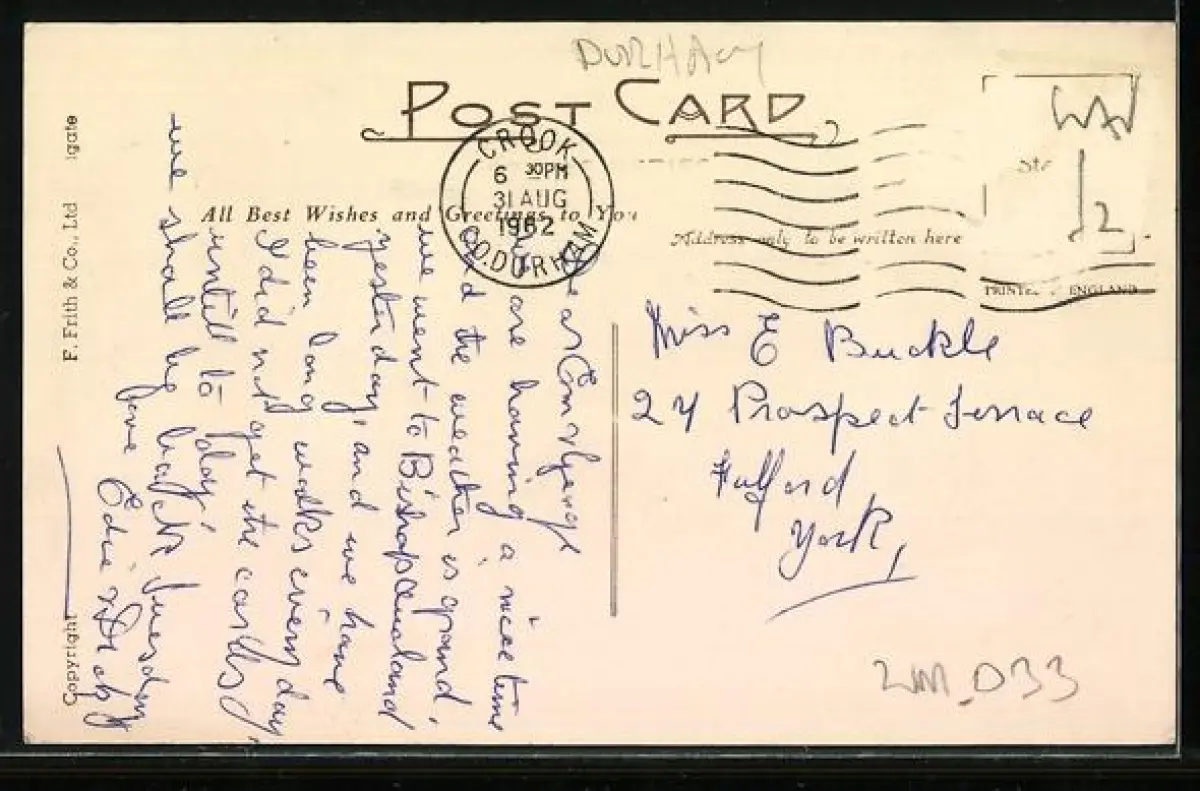 DURHAM
POST CARD
CROOK
6 30PM
31 AUG
1962
CO. DURHAM
All Best Wishes and Greetings to You
Address only to be written here
PRINTED ENGLAND
F. Frith & Co., Ltd
igate
Copyright
Dear Em & George
we are having a nice time
and the weather is grand,
we went to Bishop Auckland
yesterday, and we have
been long walks every day
I did not get the cards
untill to day,
we shall be back Tuesday
love Edie &
Miss E Buckle
24 Prospect Terrace
Fulford
York,
1
2
D33